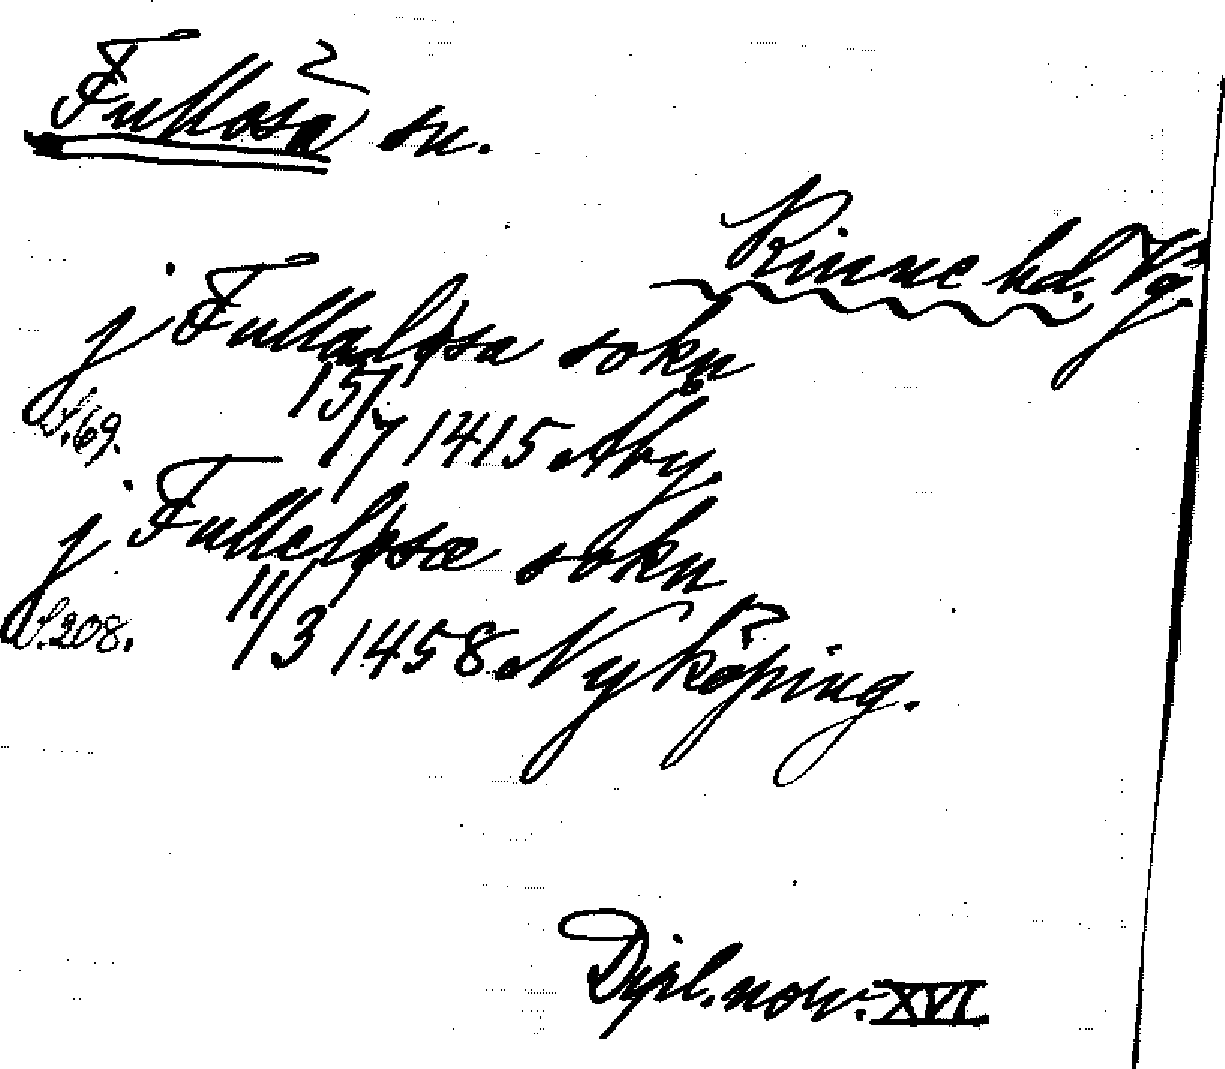 Fullösa sn.
Kinne hd. Vg
j Fullaløsa sokn
S.69. 15/7 1415 Åby.
j Fulleløsæ sokn
S.208. 11/3 1458 Nyköping.
Dipl. norv. XVI